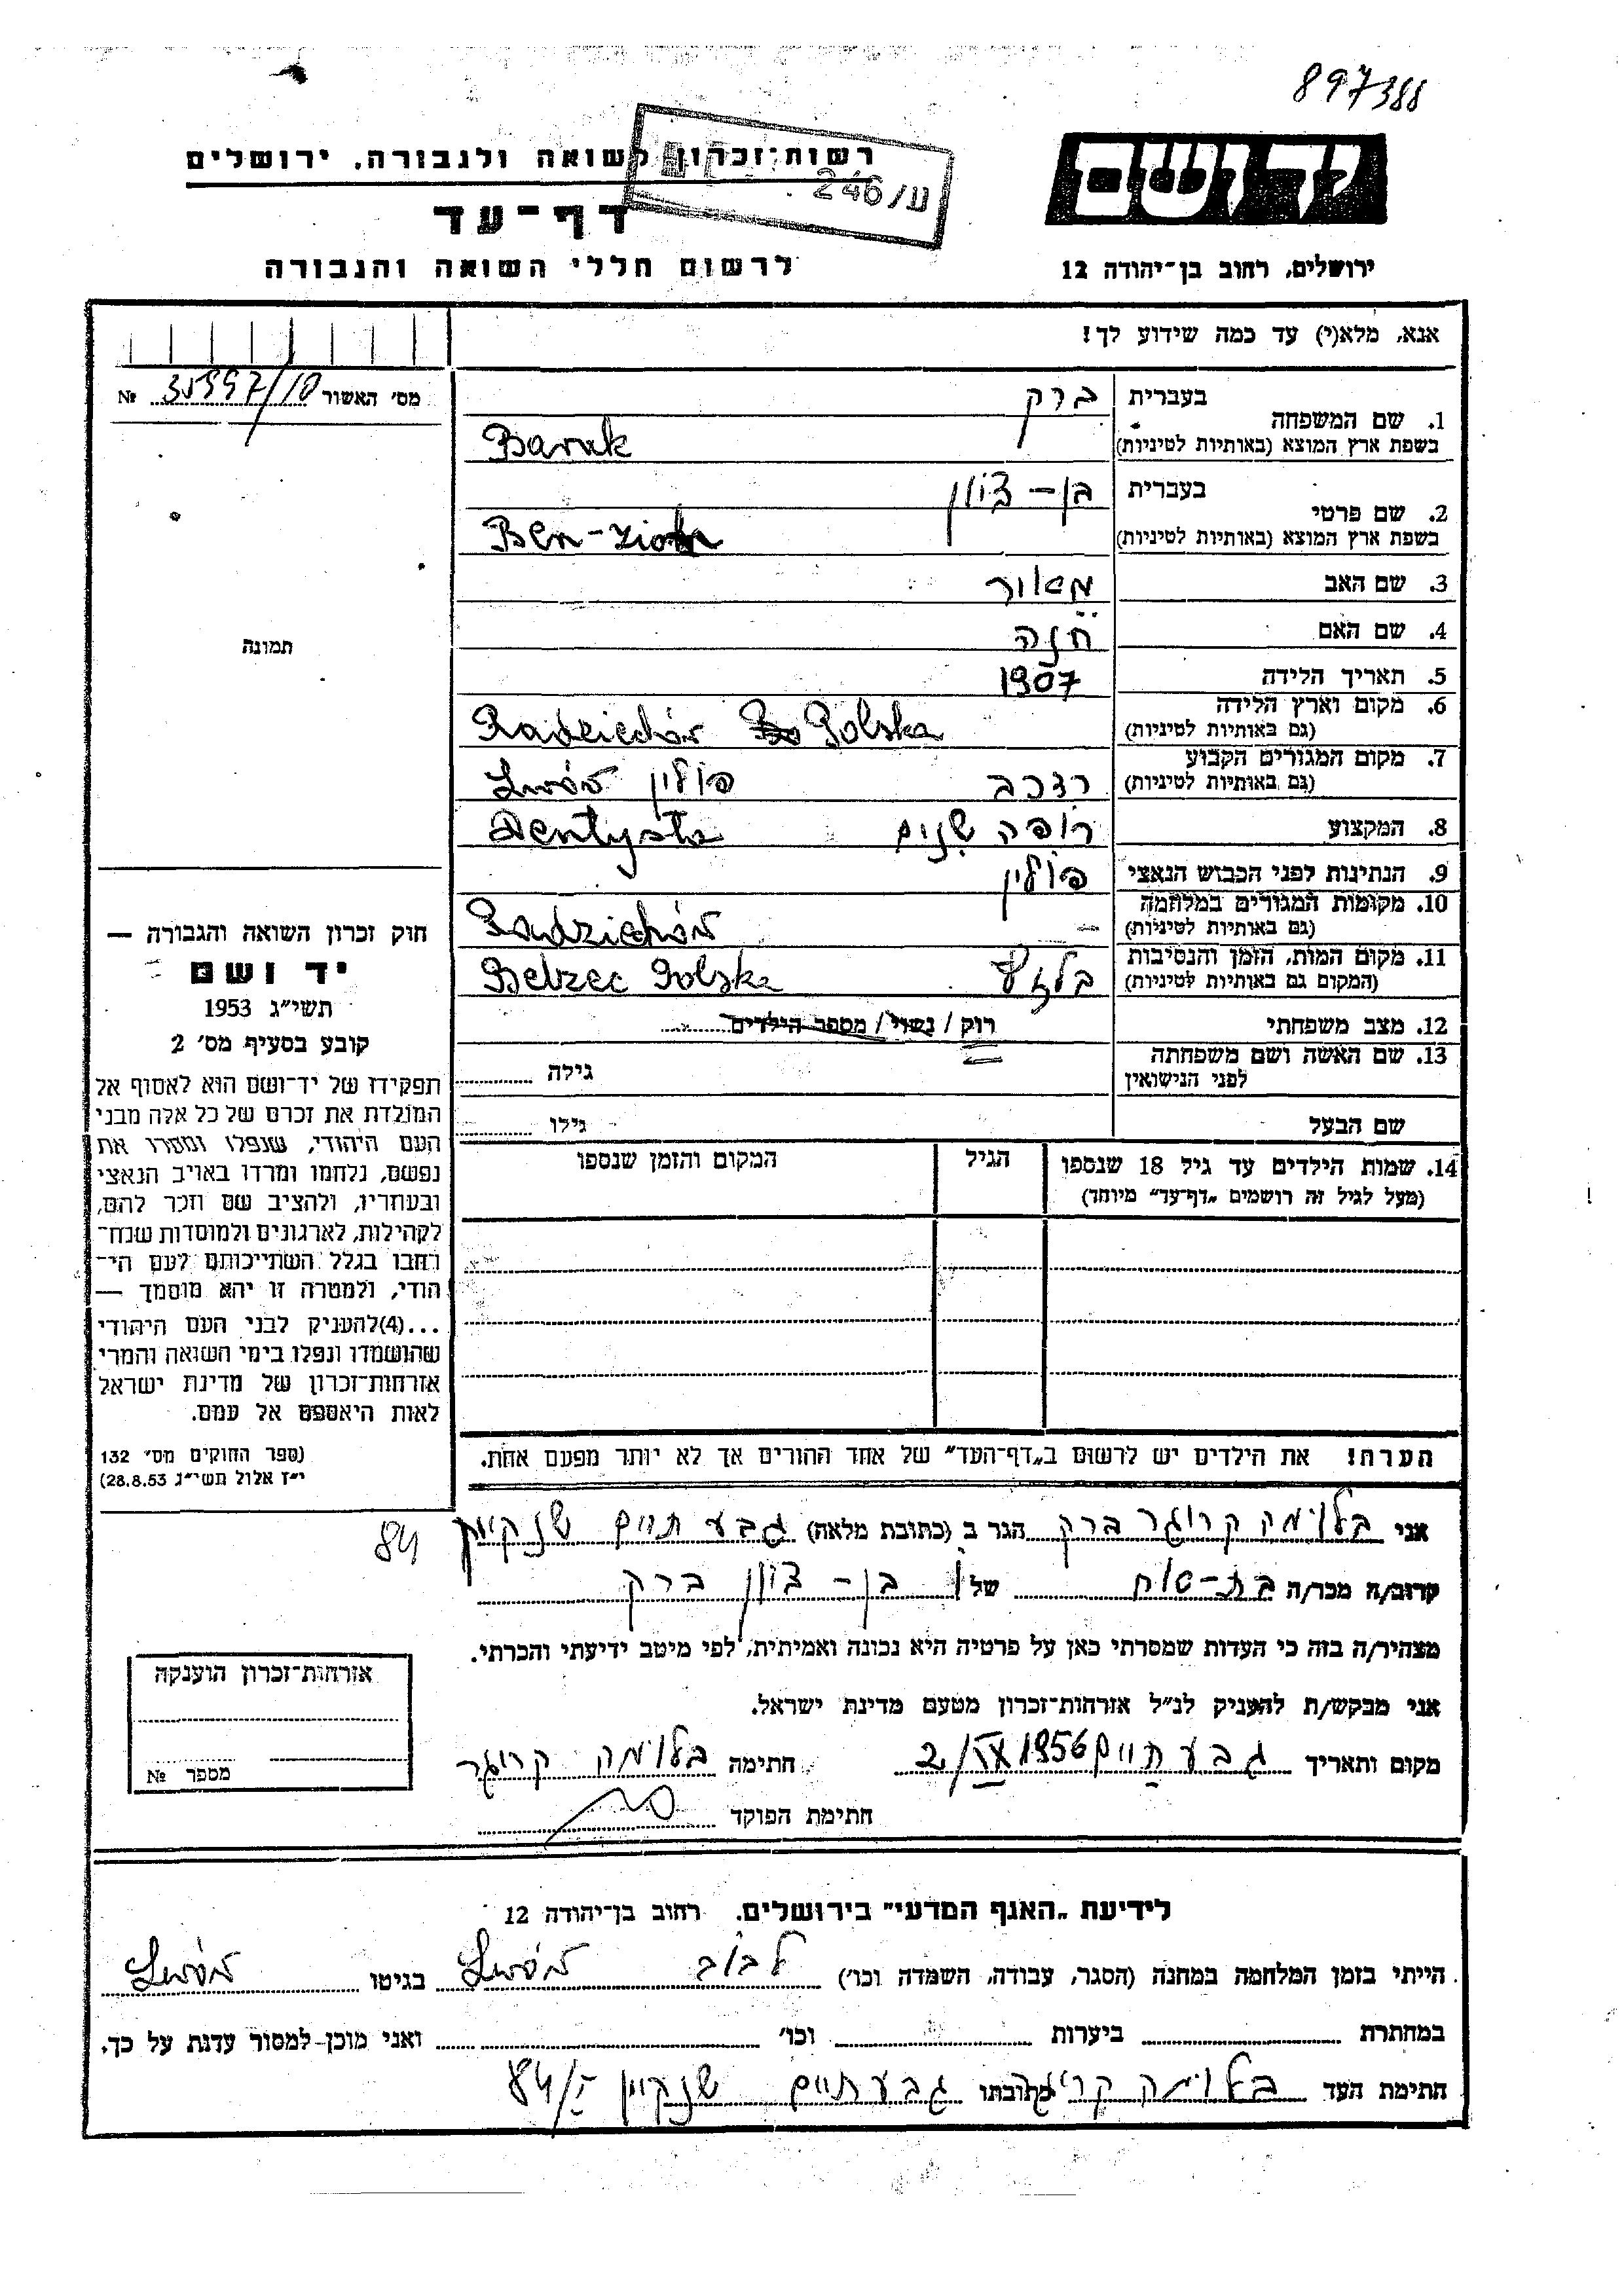 897388
יד ושם
רשות־זכרון לשואה ולגבורה, ירושלים
ע/246
דף־עד
ירושלים, רחוב בן־יהודה 12
לרשום חללי השואה והגבורה
אנא, מלא(י) עד כמה שידוע לך!
מס׳ האשור 35997/10 №
1. שם המשפחה בעברית ברק
בשפת ארץ המוצא (באותיות לטיניות) Baruk
2. שם פרטי בעברית בן-ציון
בשפת ארץ המוצא (באותיות לטיניות) Ben-Zion
3. שם האב מאור
4. שם האם חנה
5. תאריך הלידה 1907
6. מקום וארץ הלידה
(גם באותיות לטיניות) Radziechów Polska
7. מקום המגורים הקבוע
(גם באותיות לטיניות) רדכב פולין Lwów
8. המקצוע רופה שנים Dentysta
9. הנתינות לפני הכבוש הנאצי פולין
10. מקומות המגורים במלחמה
(גם באותיות לטיניות) Radziechów
11. מקום המות, הזמן והנסיבות
(המקום גם באותיות לטיניות) Belzec Polska
12. מצב משפחתי רוק / נשוי / מספר הילדים
13. שם האשה ושם משפחתה
לפני הנישואין גילה
שם הבעל גילו
14. שמות הילדים עד גיל 18 שנספו הגיל המקום והזמן שנספו
(מעל לגיל זה רושמים „דף־עד״ מיוחד)
הערה! את הילדים יש לרשום ב„דף־העד״ של אחד ההורים אך לא יותר מפעם אחת.
תמונה
חוק זכרון השואה והגבורה —
יד ושם
תשי״ג 1953
קובע בסעיף מס׳ 2
תפקידו של יד־ושם הוא לאסוף אל
המולדת את זכרם של כל אלה מבני
העם היהודי, שנפלו ומסרו את
נפשם, נלחמו ומרדו באויב הנאצי
ובעוזריו, ולהציב שם וזכר להם,
לקהילות, לארגונים ולמוסדות שנח־
רבו בגלל השתייכותם לעם הי־
הודי, ולמטרה זו יהא מוסמך —
...(4)להעניק לבני העם היהודי
שהושמדו ונפלו בימי השואה והמרי
אזרחות־זכרון של מדינת ישראל
לאות היאספם אל עמם.
(ספר החוקים מס׳ 132
י״ז אלול תשי״ג 28.8.53)
אני בלומה קרוגר ברק הגר ב (כתובת מלאה) גבעתיים שנקיין
84
קרוב/ה מכר/ה של בן-ציון ברק
מצהיר/ה בזה כי העדות שמסרתי כאן על פרטיה היא נכונה ואמיתית, לפי מיטב ידיעתי והכרתי.
אני מבקש/ת להעניק לנ״ל אזרחות־זכרון מטעם מדינת ישראל.
מקום ותאריך גבעתיים 1956 חתימה בלומה קרוגר
חתימת הפוקד
אזרחות־זכרון הוענקה
מספר №
לידיעת „האגף המדעי״ בירושלים. רחוב בן־יהודה 12
הייתי בזמן המלחמה במחנה (הסגר, עבודה, השמדה וכו׳) לבוב Lwów בגיטו Lwów
במחתרת ביערות וכו׳ ואני מוכן למסור עדות על כך.
חתימת העד בלומה קרוגר כתובתו גבעתיים שנקיין 84/I